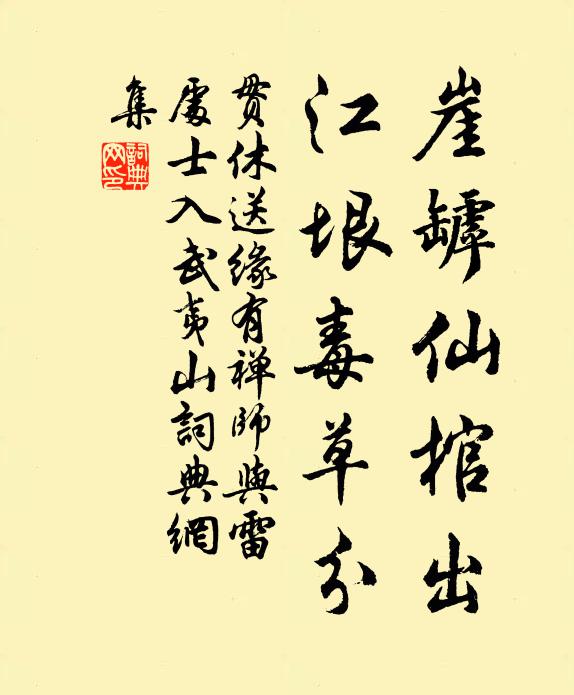 崖罅仙棺出
江垠毒草分
贯休送缘有禅师与雷
處士入武夷山詞典網
集
詞典網印